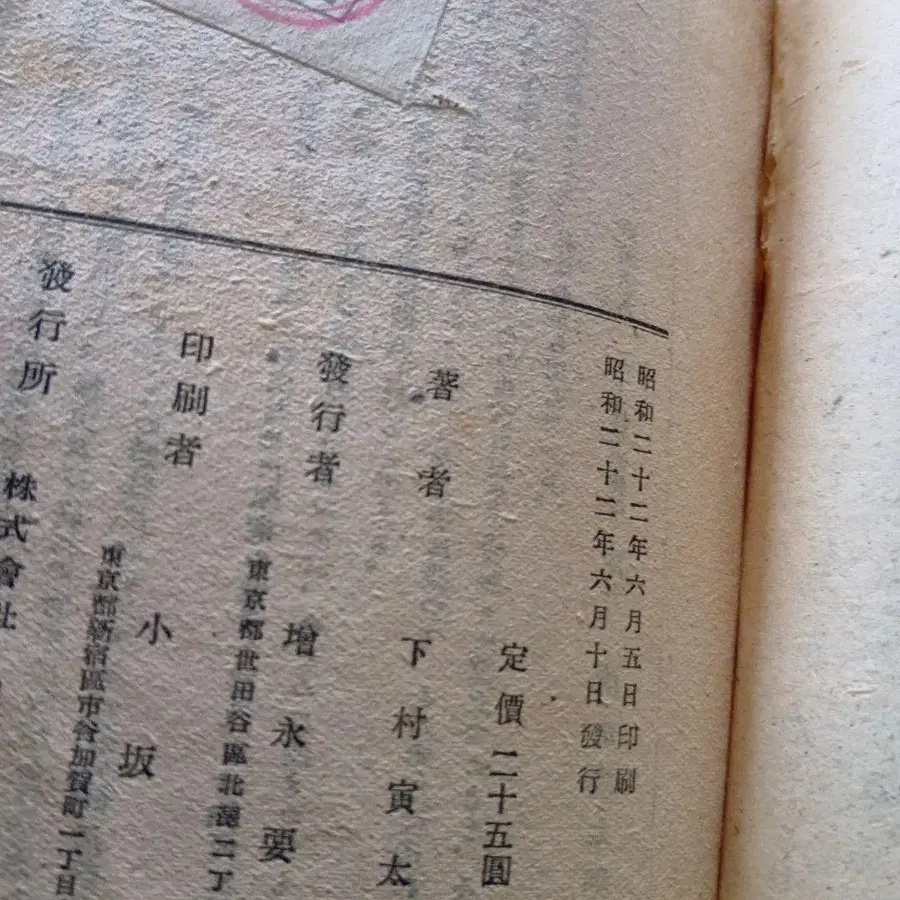 昭和二十二年六月五日印刷
昭和二十二年六月十日發行
定價二十五圓
著者
下村寅太
發行者
東京都世田谷區北澤二丁
增永要
印刷者
東京都新宿區市谷加賀町一丁目
小坂
發行所
株式會社